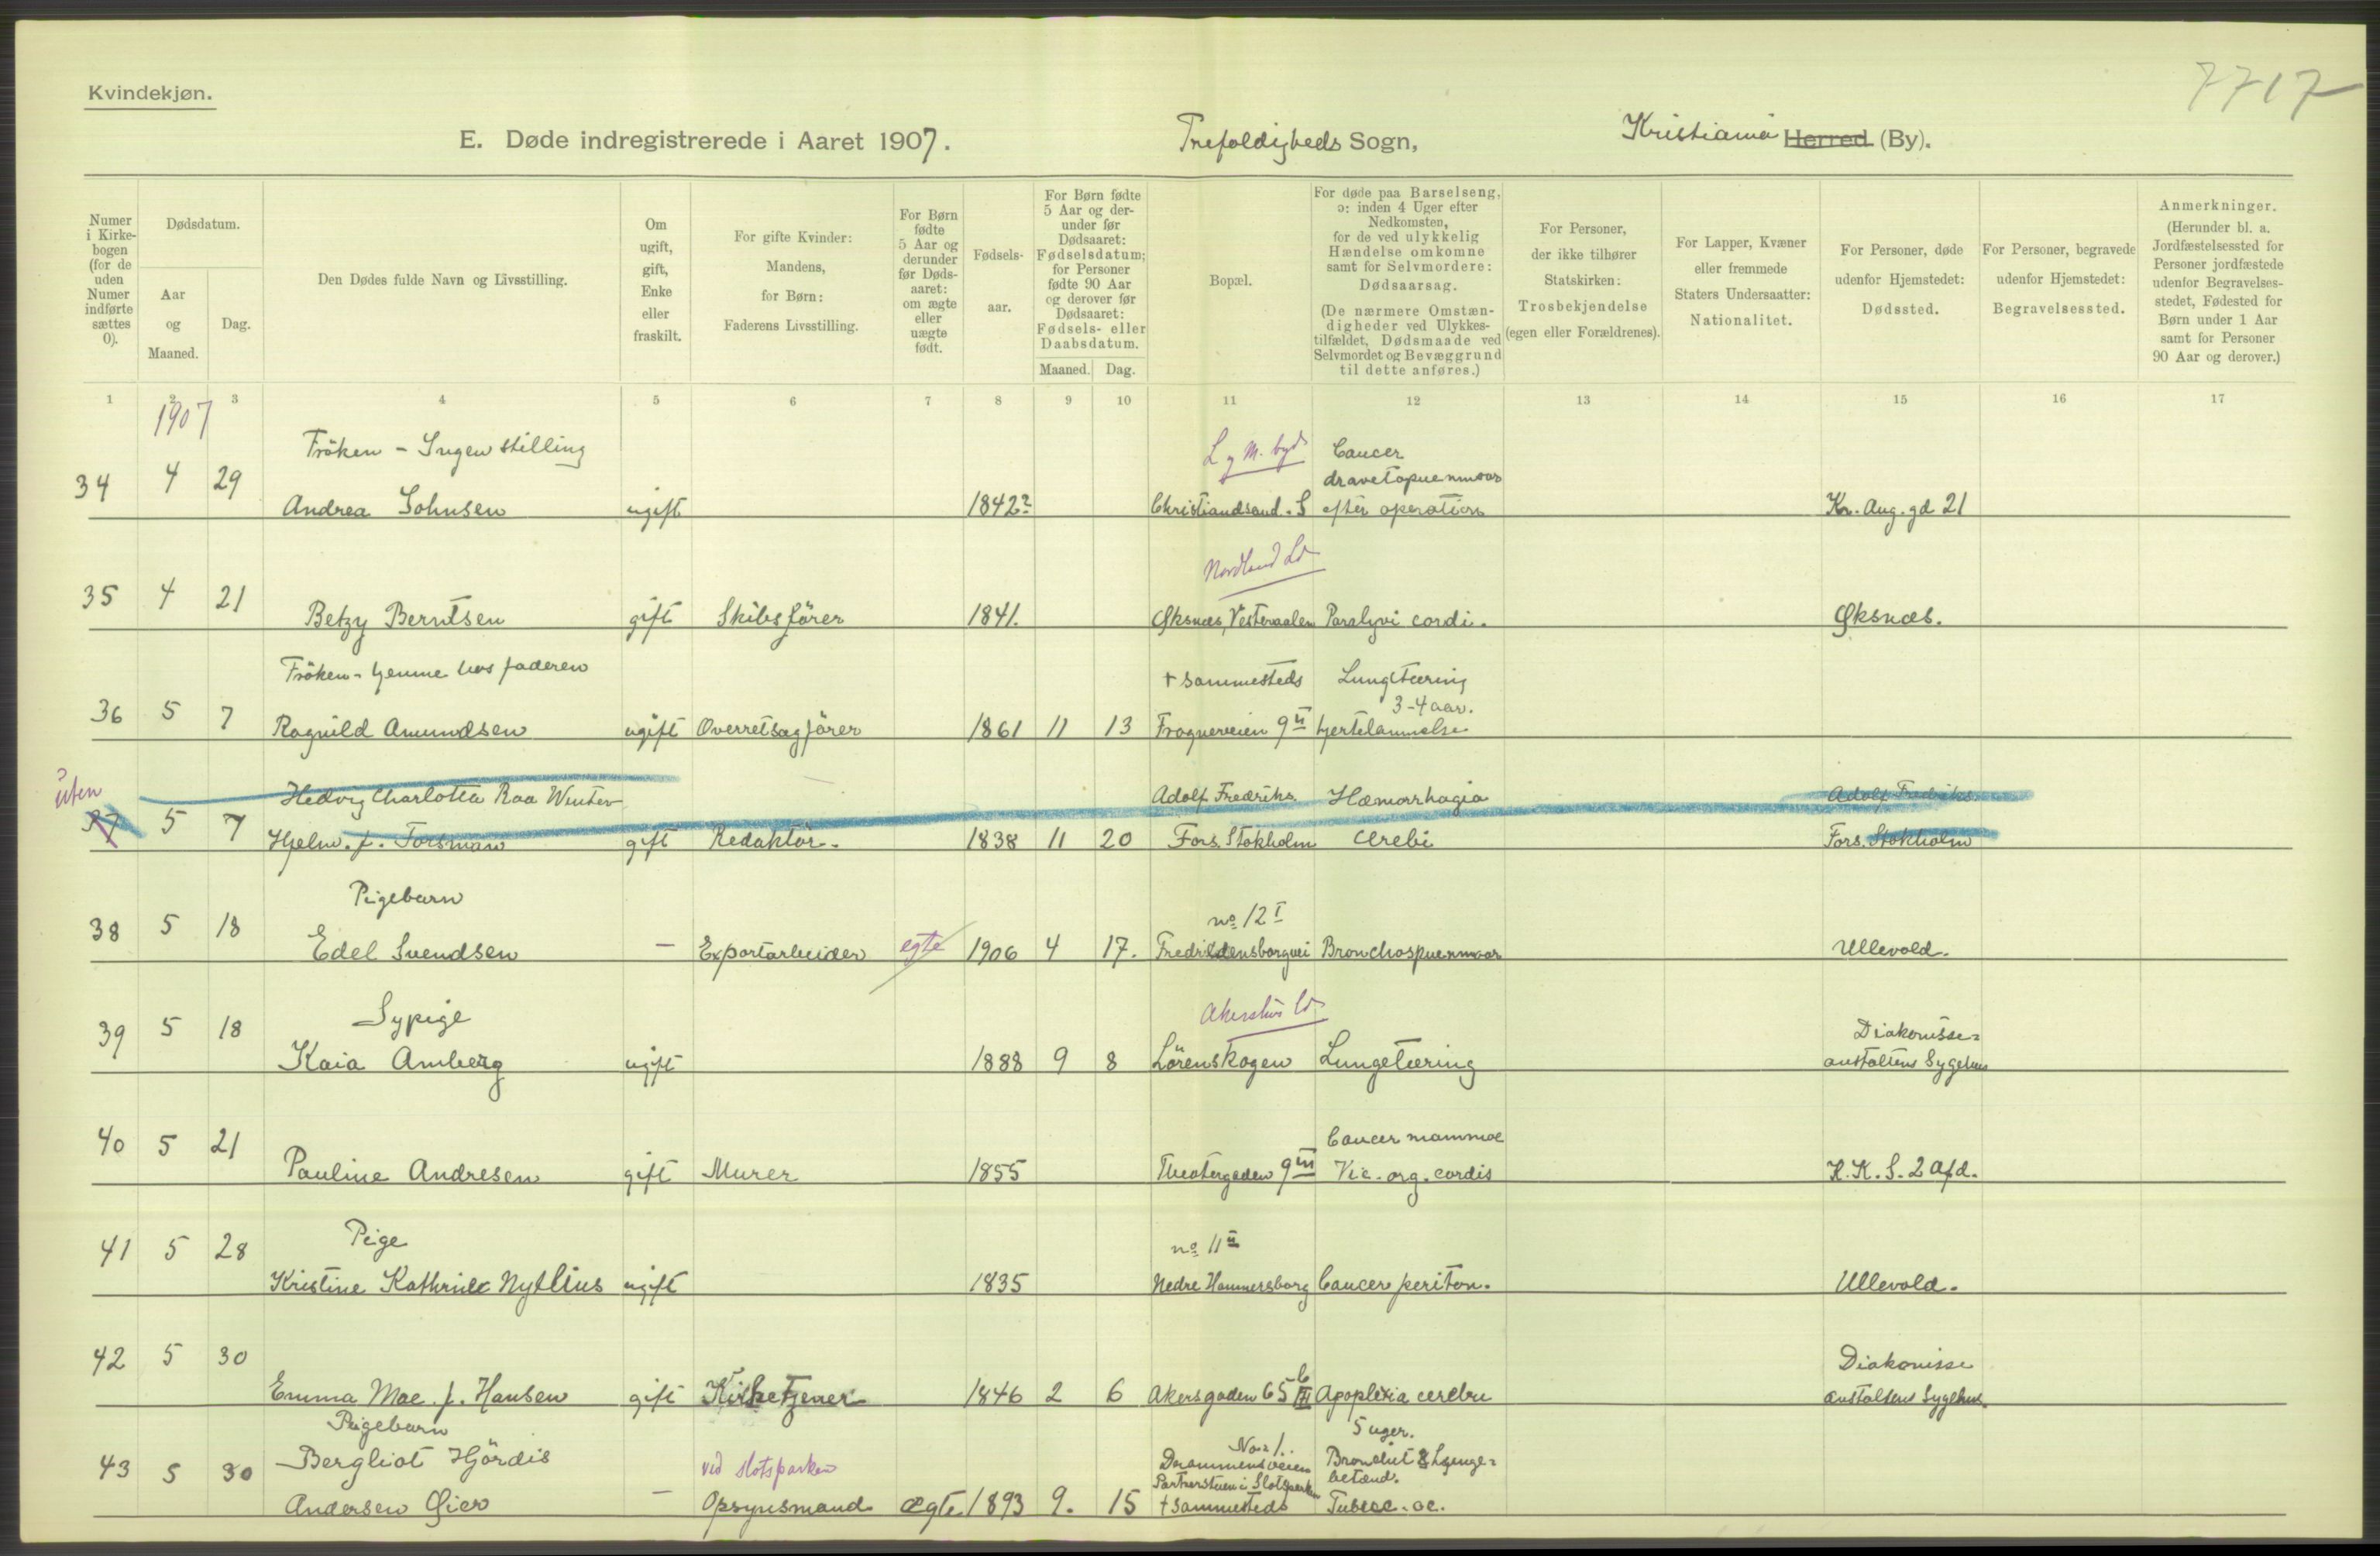 7717
Kvindekjøn.
E. Døde indregistrerede i Aaret 1907. Trefoldigheds Sogn, Kristiania Herred (By).
Numer i Kirkebogen (for de uden Numer indførte sættes 0).
Dødsdatum.
Aar og Maaned.
Dag.
Den Dødes fulde Navn og Livsstilling.
Om ugift, gift, Enke eller fraskilt.
For gifte Kvinder: Mandens, for Børn: Faderens Livsstilling.
For Børn fødte 5 Aar og derunder før Dødsaaret: om ægte eller uægte født.
Fødselsaar.
For Børn fødte 5 Aar og derunder før Dødsaaret: Fødselsdatum; for Personer fødte 90 Aar og derover før Dødsaaret: Fødsels- eller Daabsdatum.
Maaned. Dag.
Bopæl.
For døde paa Barselseng, ɔ: inden 4 Uger efter Nedkomsten, for de ved ulykkelig Hændelse omkomne samt for Selvmordere: Dødsaarsag.
(De nærmere Omstændigheder ved Ulykkestilfældet, Dødsmaade ved Selvmordet og Bevæggrund til dette anføres.)
For Personer, der ikke tilhører Statskirken: Trosbekjendelse (egen eller Forældrenes).
For Lapper, Kvæner eller fremmede Staters Undersaatter: Nationalitet.
For Personer, døde udenfor Hjemstedet: Dødssted.
For Personer, begravede udenfor Hjemstedet: Begravelsessted.
Anmerkninger.
(Herunder bl. a. Jordfæstelsessted for Personer jordfæstede udenfor Begravelsesstedet, Fødested for Børn under 1 Aar samt for Personer 90 Aar og derover.)
1 2 3 4 5 6 7 8 9 10 11 12 13 14 15 16 17
1907
Fröken - Ingen stilling L y M. byd Cancer
34 4 29 Andrea Johnsen ugift 1842? Christiandsand. S efter operation Kr. Aug. gd 21
Nordland
35 4 21 Betzy Berntsen gift Skibsförer 1841. Øksnæs, Vesteraalen Paralysi cordi. Øksnæs.
Fröken - hjemme hos faderen + sammesteds Lungtæring
3-4 aar.
36 5 7 Ragnild Amundsen ugift Overretsagförer 1861 11 13 Frognerveien 9 II hjertelammelse
uten
Hedvig Charlotta Raa Winter Adolf Fredriks Hæmorrhagia Adolf Fredriks
37 5 7 Hjelm. f. Forsman gift Redaktör. 1838 11 20 Fors. Stokholm cerebi Fors. Stokholm
Pigebarn no 12 I
38 5 18 Edel Svendsen - Exportarbeider egte 1906 4 17. Fredensborgvei Bronchospnenmoni Ullevold.
Sypige Akershus Diakonisse=
39 5 18 Kaia Amberg ugift 1888 9 8 Lörenskogen Lungetæring anstaltens Sygehus
Cancer mammae
40 5 21 Pauline Andresen gift Murer 1855 Theatergaden 9 III Vic. org. cordis K. K. S. 2 Afd.
Pige no 11 II
41 5 28 Kristine Kathrine Nyllius ugift 1835 Nedre Hammersborg Cancer periton. Ullevold.
Diakonisse
42 5 30 Emma Moe f. Hansen gift Kirketjener 1846 2 6 Akersgaden 65 b III Apoplexia cerebri anstaltens Sygehus.
Pigebarn 5 uger.
Bergliot Hjördis No 1. Bronchit & Lunge=
43 5 30 ved slotsparken Drammensveien betænd.
Portnerstuen i Slotsparken
Andersen Gier - Opsynsmand Ægte 1893 9. 15 + sammesteds